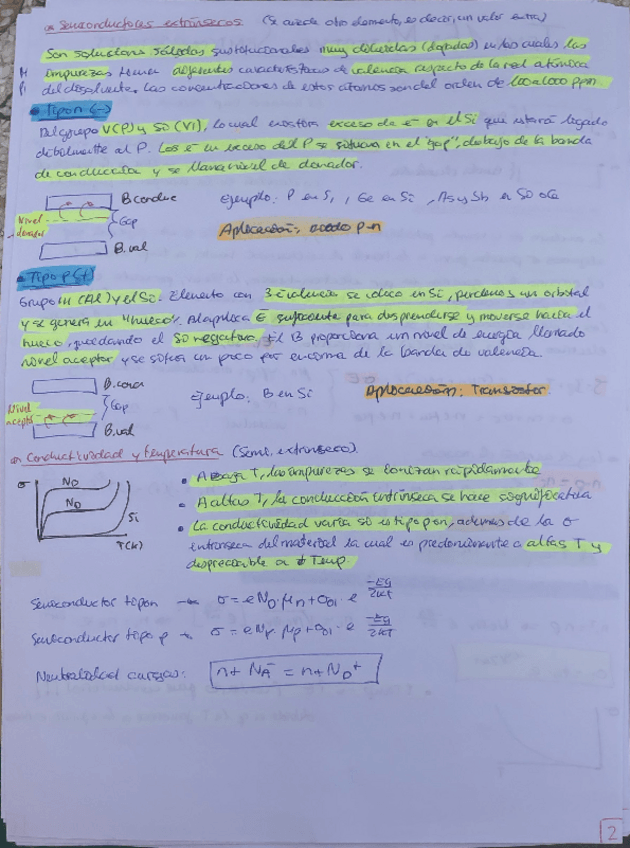 Semiconductores extrínsecos (Se añade otro elemento, es decir, un valor extra)
Son soluciones sólidas sustitucionales muy diluidas (dopadas) en las cuales las
impurezas tienen diferentes características de valencia respecto de la red atómica
del disolvente. Las concentraciones de estos átomos son del orden de 100 a 1000 ppm.
Tipo n (-)
Del grupo V (P) y Si (VI), lo cual existirá exceso de e- en el Si que estará ligado
débilmente al P. Los e- en exceso del P se sitúan en el "gap", debajo de la banda
de conducción y se llama nivel de donador.
B conduc
Nivel donador
Gap
B. val
Ejemplo: P en Si, Ge en Si, As y Sb en Si o Ge
Aplicación: diodo p-n
Tipo p (+)
Grupo III (Al) y el Si. Elemento con 3 e- valencia se ubica en Si, perdemos un orbital
y se genera un "hueco". Al aplica E suficiente para desprenderse y moverse hacia el
hueco, quedando el Si negativo. El B proporciona un nivel de energía llamado
nivel aceptor y se sitúa un poco por encima de la banda de valencia.
B. conduc
Nivel acepto
Gap
B. val
Ejemplo: B en Si
Aplicación: Transistor
Conductividad y temperatura (Semi. extrínseco).
σ
ND
ND
Si
T(K)
A baja T, las impurezas se ionizan rápidamente
A altas T, la conducción intrínseca se hace significativa
La conductividad varía si es tipo p o n, además de la σ
intrínseca del material la cual es predominante a altas T y
despreciable a ↓ Temp.
Semiconductor tipo n → σ = e ND · μn + σoi · e^(-Eg/2kT)
Semiconductor tipo p → σ = e NP · μp + σoi · e^(-Eg/2kT)
Neutralidad cargas: n + NA⁻ = n + ND⁺
2